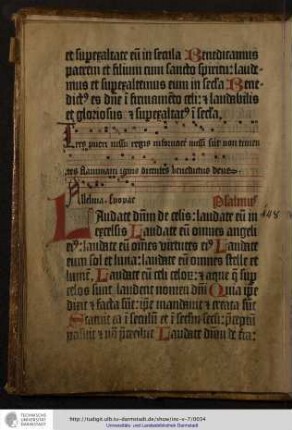 et superaltate eū in secula Benedicamus
patrem et filium cum sancto spiritu: laude-
mus et superexaltemus eum in secľa Bene-
dict⁹ es dn̄e ī firmamēto celi: ⁊ laudabilis
et gloriosus ⁊ superexaltat⁹ ī secľa.
Tres pueri iussu regis in missi sūt non timen
tes flammam ignis dicentes benedictus deus
Alleluia. Euouae Psalmus
LAudate dn̄m de celis: laudate eū in
excelsis Laudate eum omnes angeli
ei⁹: laudate eū om̄es virtutes ei⁹ Laudate
eum sol et luna: laudate eum omnes stelle et
lumē. Laudate eū celi celoꝝ: ⁊ aque q̄ sup
celos sunt, laudent nomen dn̄i Quia ip̄e
dixit ⁊ facta sūt: ip̄e mandauit ⁊ creata sūt
Statuit ea ī seculū et ī secľm secľi: p̄ceptū
posuit ⁊ nō p̄teribit Laudate dn̄m de ter-
148
TECHNISCHE
UNIVERSITÄT
DARMSTADT
http://tudigit.ulb.tu-darmstadt.de/show/inc-v-7/0034
Universitäts- und Landesbibliothek Darmstadt